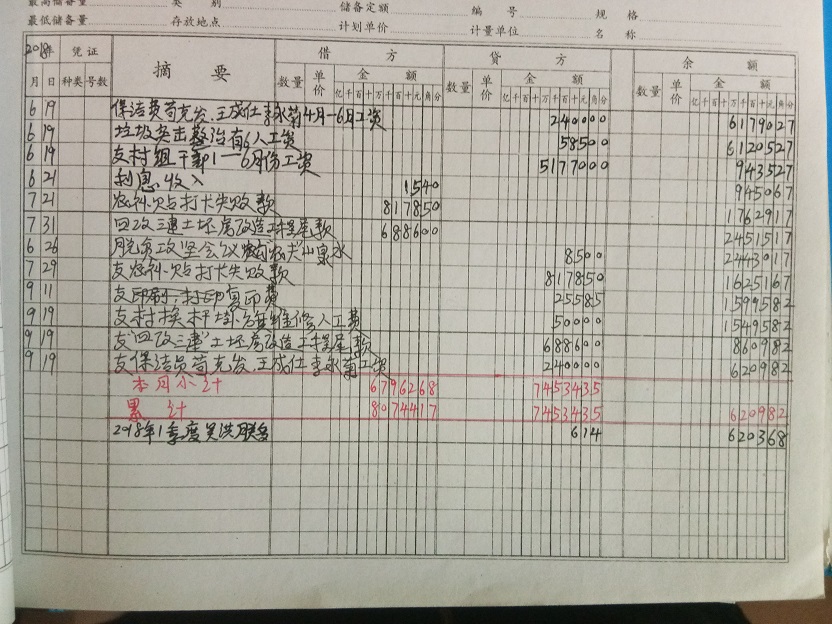 最高储备量 类 别 储备定额 编 号 规 格
最低储备量 存放地点 计划单价 计量单位 名 称
2018年 凭证 摘 要 借 方 贷 方 余 额
月 日 种类 号数 数量 单价 金 额 数量 单价 金 额 数量 单价 金 额
亿千百十万千百十元角分 亿千百十万千百十元角分 亿千百十万千百十元角分
6 19 保洁费苟克发、王成仕 李永菊4月-6月工资 240000 6179027
6 19 垃圾突击整治有6人工资 58500 6120527
6 19 支村组干部1-6月份工资 5177000 943527
6 21 利息收入 1540 945067
7 21 农补贴打卡失败款 817850 1762917
7 31 四改三建土坯房改造工程尾款 688600 2451517
6 26 脱贫攻坚会议 山泉水 8500 2443017
7 29 支农补贴打卡失败款 817850 1625167
9 11 支印刷、打印复印费 25585 1599582
9 19 支村换杆 维修人工费 50000 1549582
9 19 支"四改三建"土坯房改造工程尾款 688600 860982
9 19 支保洁员苟克发、王成仕 李永菊工资 240000 620982
本月小计 6796268 7453435
累 计 8074417 7453435 620982
2018年1季度 614 620368